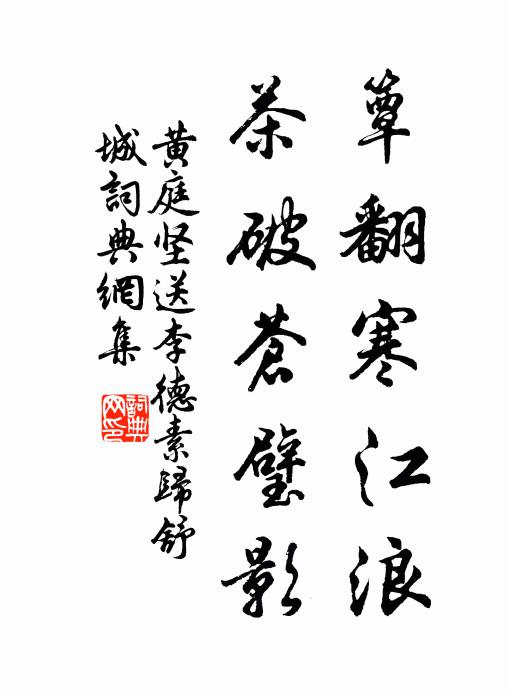 簟翻寒江浪
茶破蒼璧影
黄庭坚送李德素歸舒
城詞典網集
詞典网印